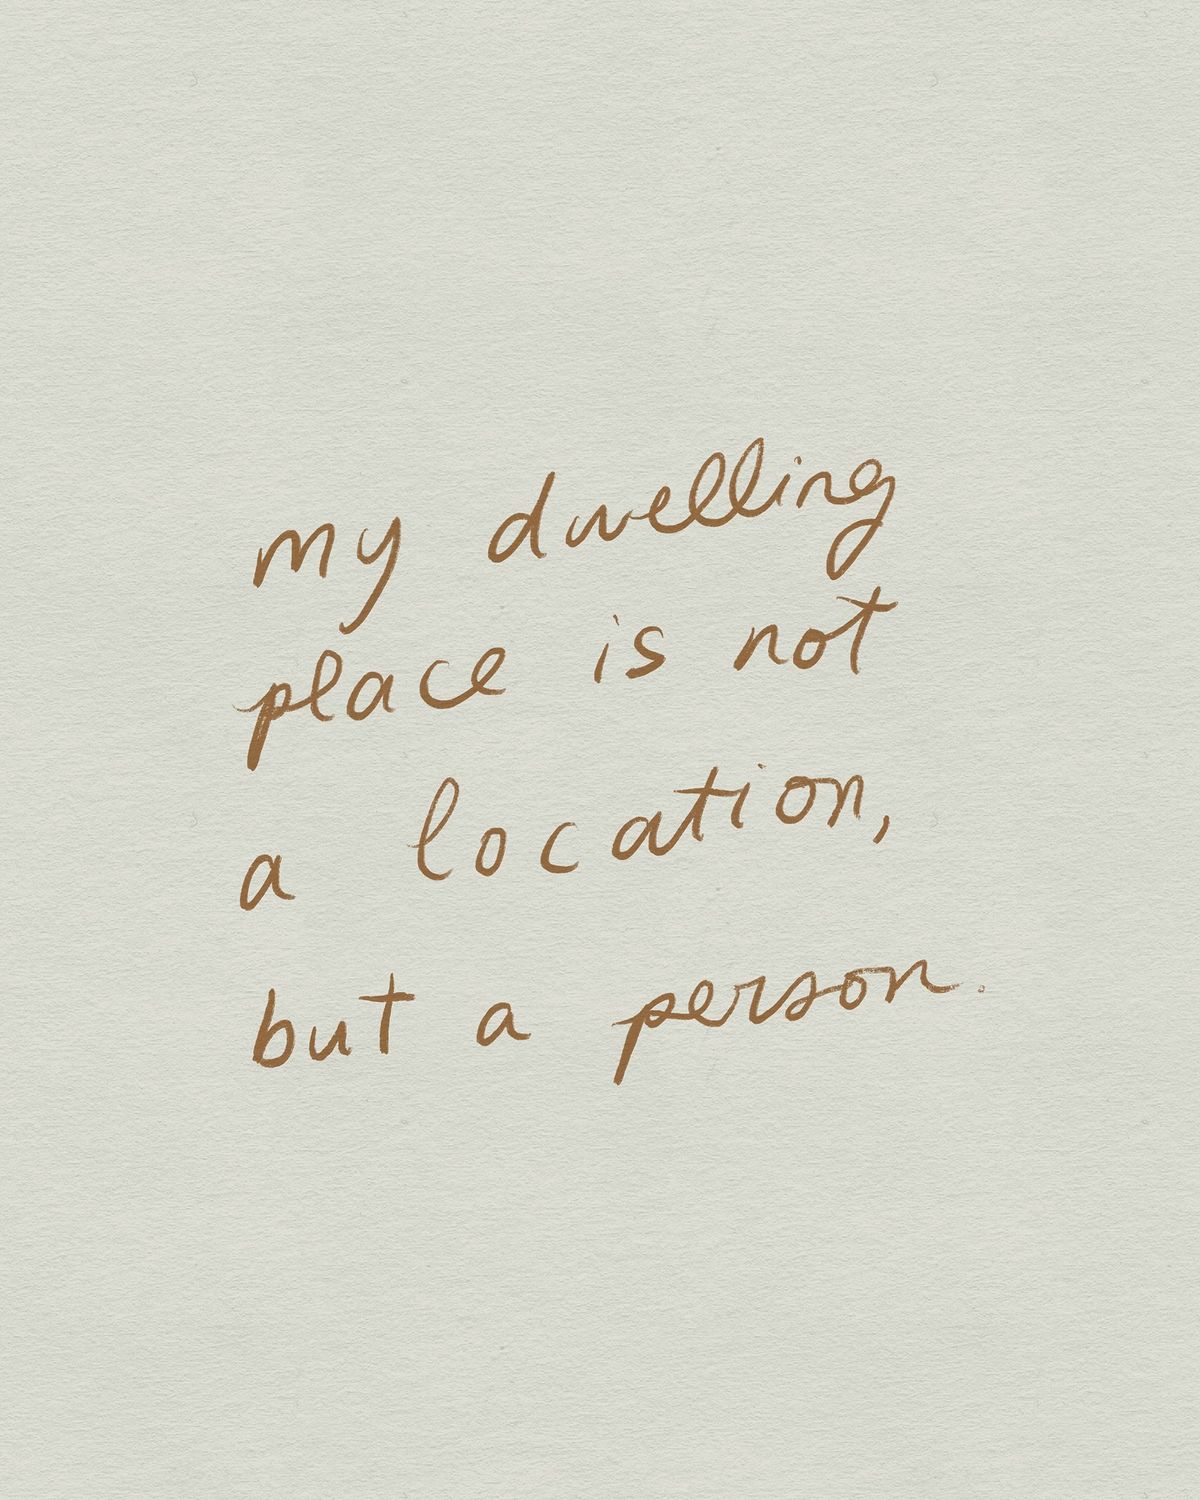 my dwelling
place is not
a location,
but a person.